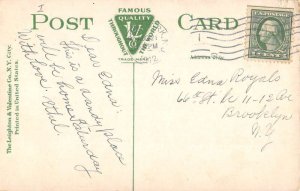 POST CARD
FAMOUS
QUALITY
THROUGHOUT THE WORLD
TRADE-MARK
The Leighton & Valentine Co., N.Y. City.
Printed in United States.
Dear Edna:
This is a dandy place
will be home Saturday
With love. Ethel
PM
U.S. POSTAGE
Miss Edna Royals
66 St. bet 11-12 Ave
Brooklyn
N.Y.